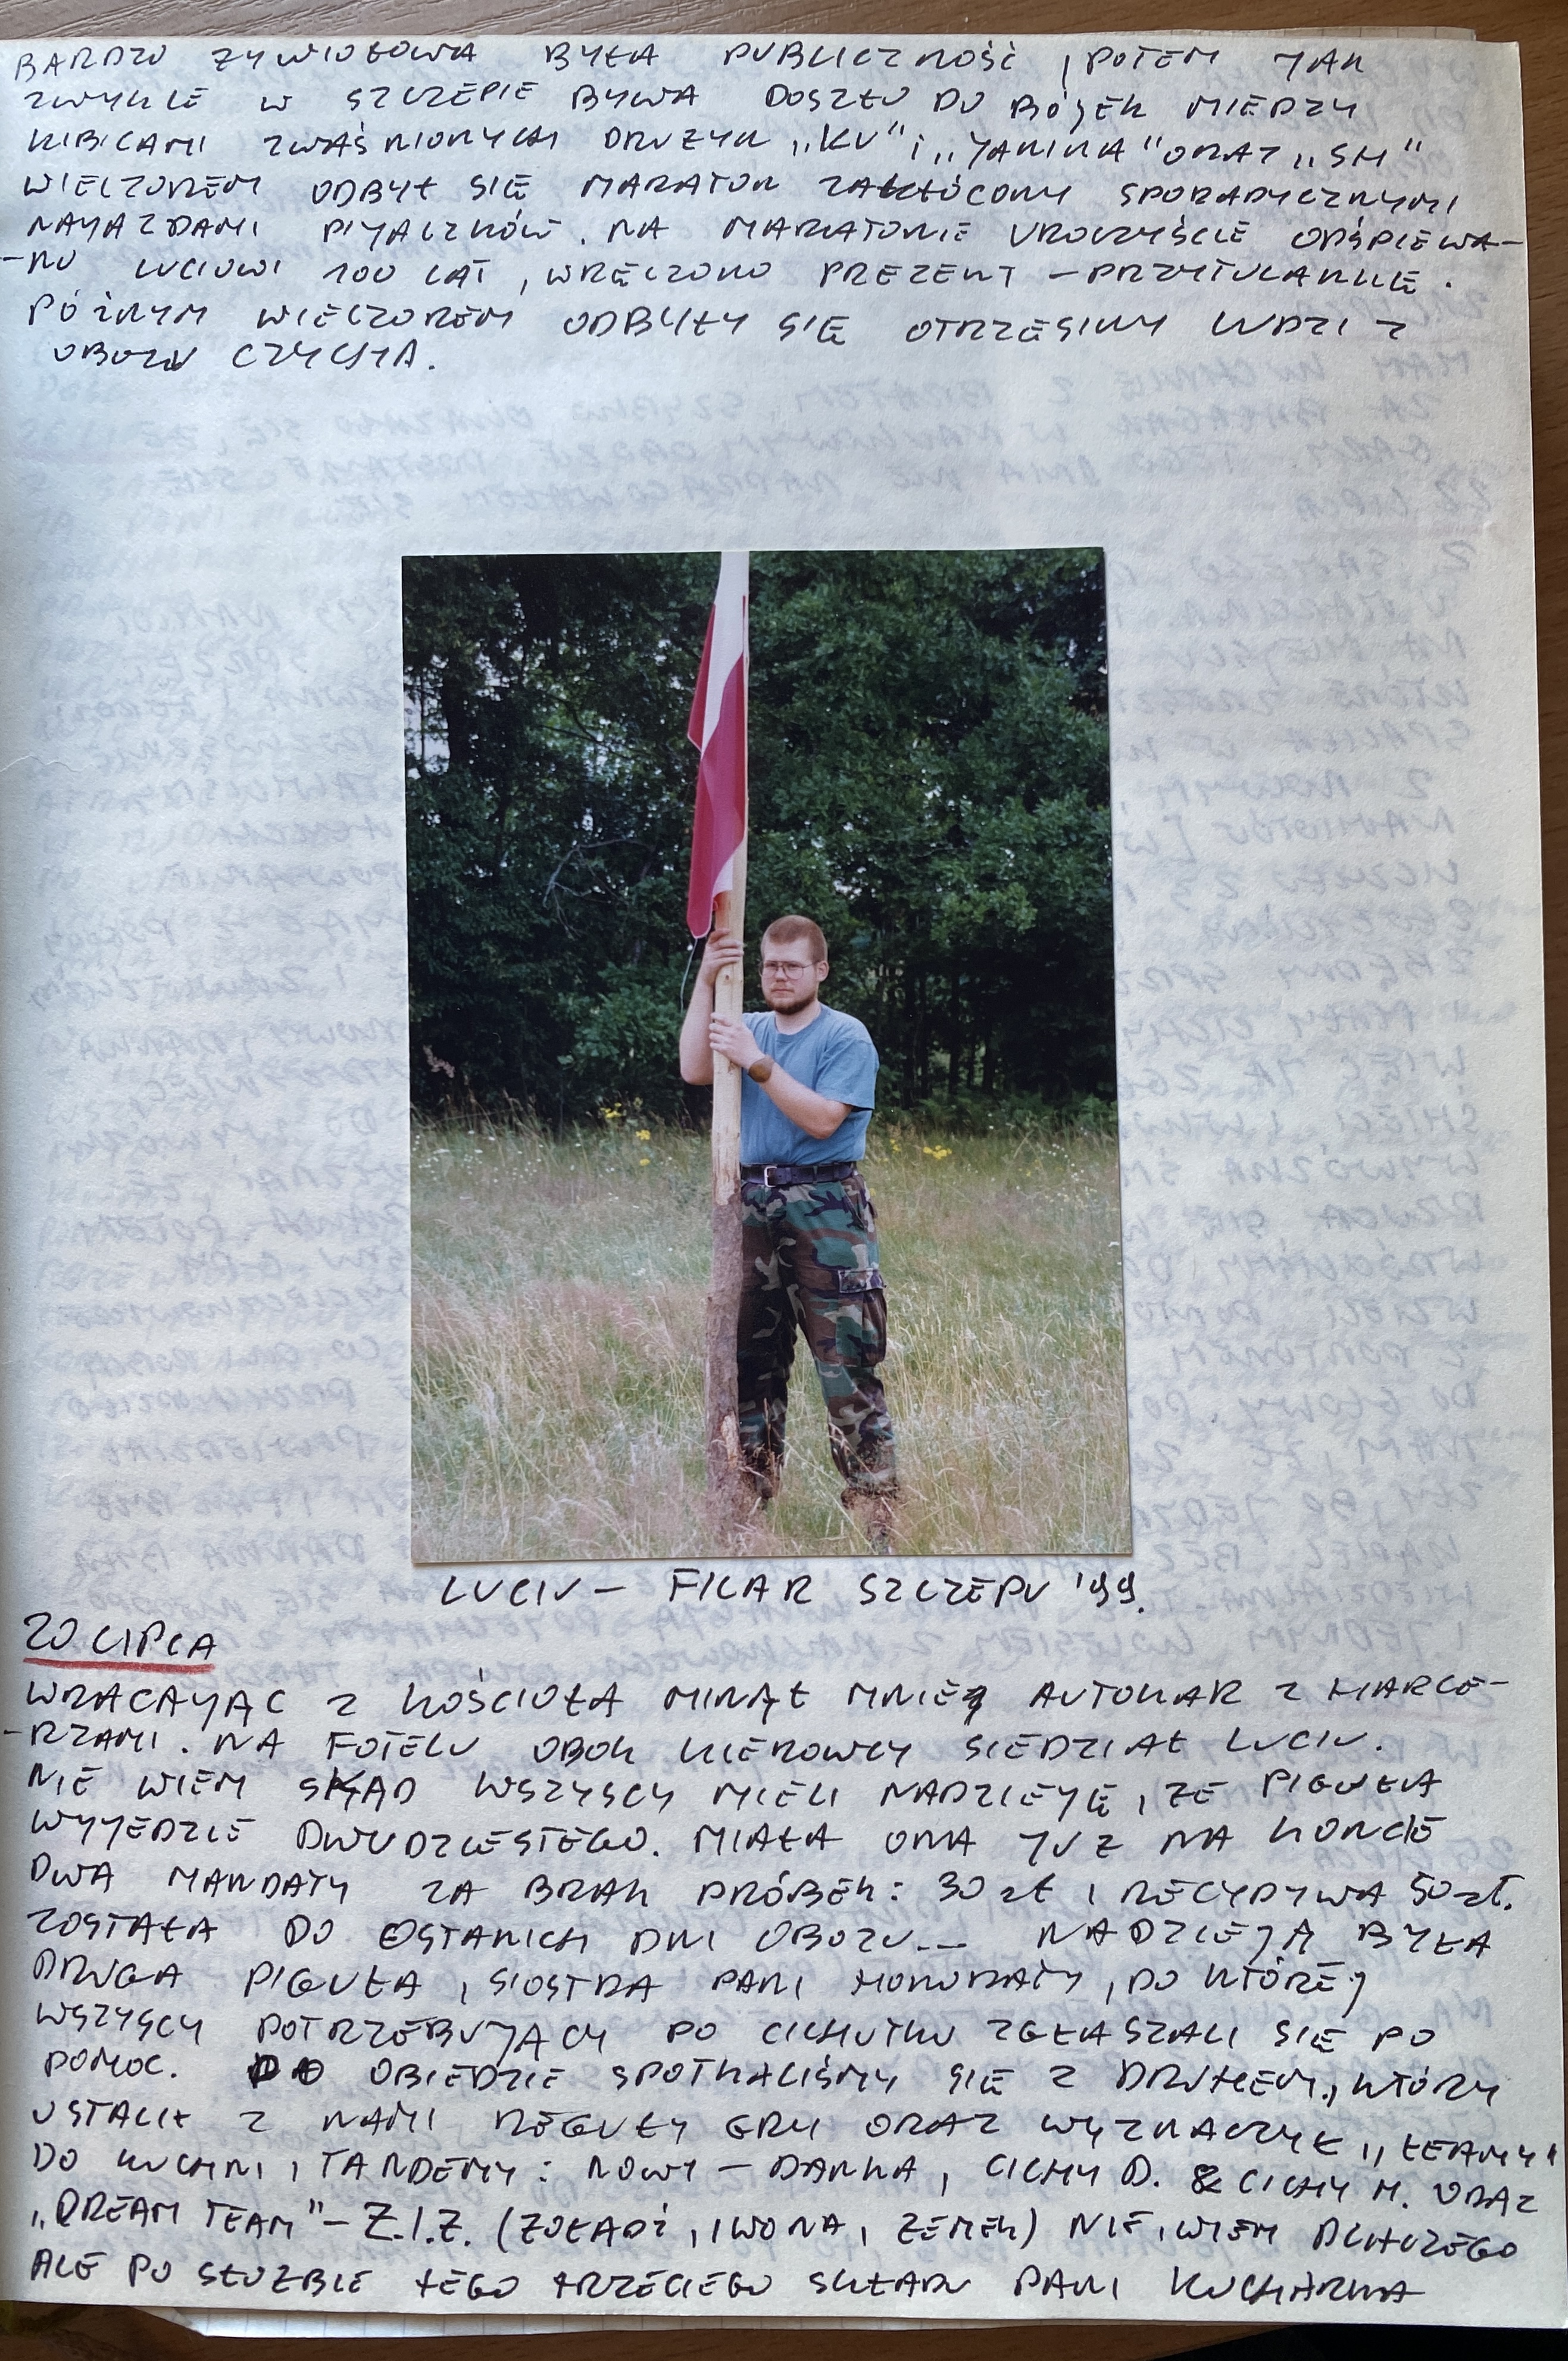 BARDZO ŻYWIOŁOWA BYŁA PUBLICZNOŚĆ, POTEM JAK
ZWYKLE W SZCZEPIE BYWA DOSZŁO DO BÓJEK MIEDZY
KIBICAMI ZWAŚNIONYCH DRUZYN „KU” i „JANINA” ORAZ „SM”
WIECZOREM ODBYŁ SIĘ MARATON ZAKŁÓCONY SPORADYCZNYMI
NAJAZDAMI PIJACZKÓW. NA MARATONIE UROCZYŚCIE ODŚPIEWA-
-NO LUCIOWI 100 LAT, WRĘCZONO PREZENT – PRZYTULANKĘ.
PÓŹNYM WIECZOREM ODBYŁY SIĘ OTRZĘSINY LUDZI Z
OBOZU CZYCHA.
LUCIU – FILAR SZCZEPU '99.
20 LIPCA
WRACAJĄC Z KOŚCIOŁA MINĄŁ MNIE AUTOKAR Z HARCE-
-RZAMI. NA FOTELU OBOK KIEROWCY SIEDZIAŁ LUCIU.
NIE WIEM SKĄD WSZYSCY MIELI NADZIEJĘ, ŻE PIGUŁA
WYJEDZIE DWUDZIESTEGO. MIAŁA ONA JUŻ NA KONCIE
DWA MANDATY ZA BRAK PRÓBEK: 30 zł i RECYDYWA 50 zł.
ZOSTAŁA DO OSTANICH DNI OBOZU... NADZIEJĄ BYŁA
DRUGA PIGUŁA, SIOSTRA PANI HONORATY, DO KTÓREJ
WSZYSCY POTRZEBUJĄCY PO CICHUTKU ZGŁASZALI SIĘ PO
POMOC. PO OBIEDZIE SPOTKALIŚMY SIĘ Z DRUHEM, KTÓRY
USTALIŁ Z NAMI REGUŁY GRY ORAZ WYZNACZYŁ „TEAMY”
DO KUCHNI, TANDEMY: NOWY – DANKA, CICHY D. & CICHY M. ORAZ
„DREAM TEAM” – Z.I.Z. (ŻOŁĄDŹ, IWONA, ZEMEK) NIE WIEM DLACZEGO
ALE PO SŁUŻBIE TEGO TRZECIEGO SKŁADU PANI KUCHARKA